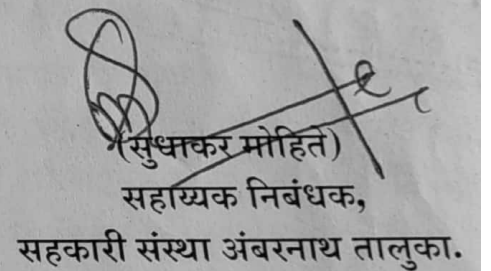 (सुधाकर मोहिते)
सहाय्यक निबंधक,
सहकारी संस्था अंबरनाथ तालुका.